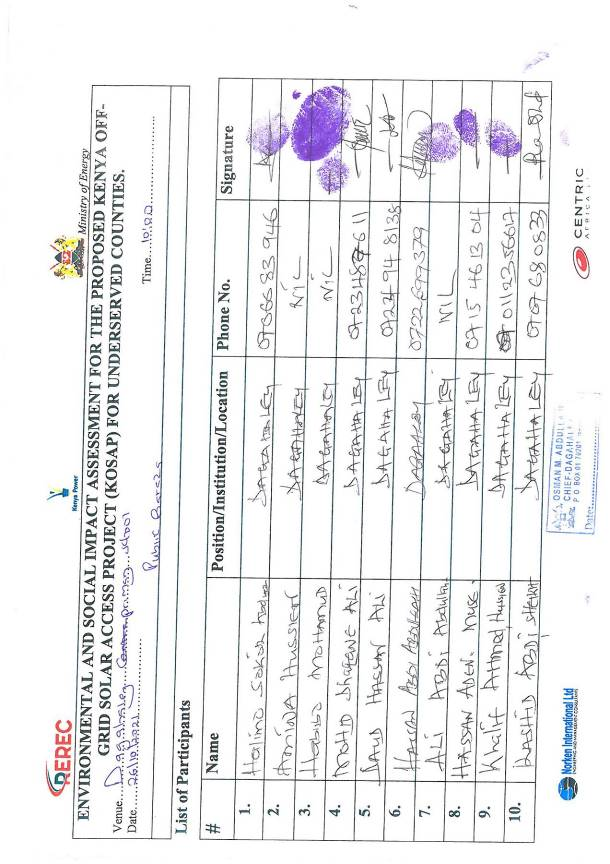 REREC
Kenya Power
Ministry of Energy
ENVIRONMENTAL AND SOCIAL IMPACT ASSESSMENT FOR THE PROPOSED KENYA OFF-
GRID SOLAR ACCESS PROJECT (KOSAP) FOR UNDERSERVED COUNTIES.
Venue....Dagahaley primary school
Date....26/10/2021 Time....10:20
Public Baraza
List of Participants
# Name Position/Institution/Location Phone No. Signature
1. Halima Sokoh DAGAHALEY 0706683946
2. AMINA HUSSIEN DAGAHALEY NIL
3. Habibo MOHAMUD DAGAHALEY NIL
4. MOHD Dhagene ALI DAGAHALEY 0723487611
5. DAUD HASSAN ALI DAGAHALEY 0724948138
6. HASSAN ABDI ABDULLAHI DAGAHALEY 0722699379
7. ALI ABDI Abdullahi DAGAHALEY NIL
8. HASSAN ADEN MUSE DAGAHALEY 0715461304
9. Khalif Ahmed Hussien DAGAHALEY 0112356017
10. RASHID ABDI SHEIKH DAGAHALEY 0707680833
OSMAN M. ABDULLAHI
CHIEF-DAGAHALEY
P O BOX 01 70201
Date:
Norken International Ltd
ENGINEERING AND MANAGEMENT CONSULTANTS
CENTRIC
AFRICA LTD